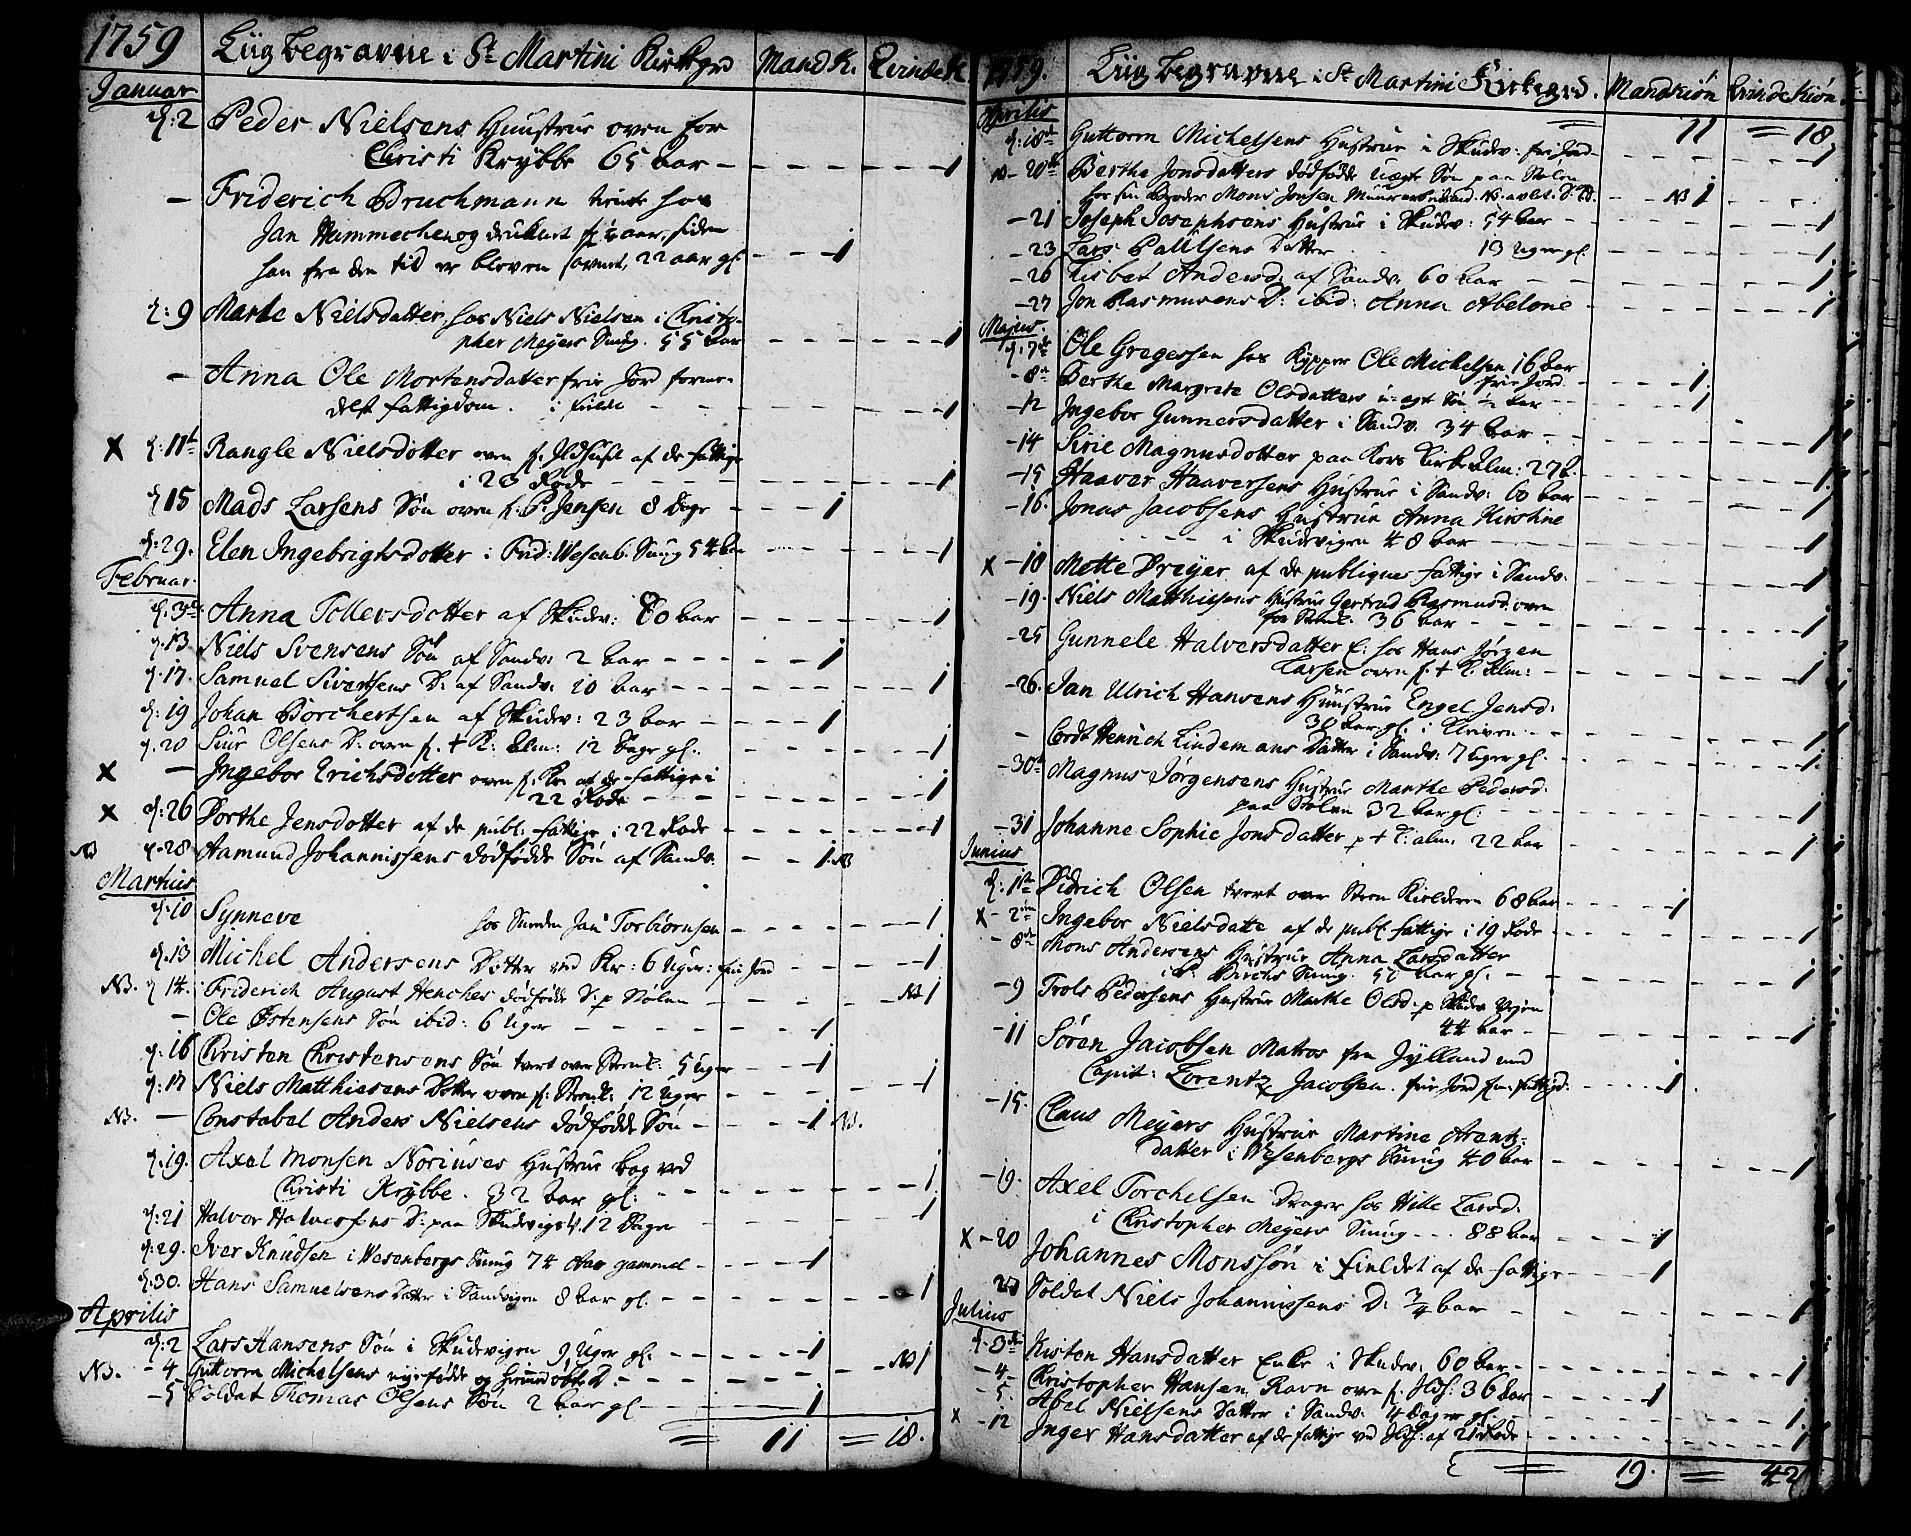 1759 Liig begravne i St. Martini Kirkgrd Mand K. Qvinde K
Januar
d: 2 Peder Nielsens Huustrue oven for
Christi Krybbe 65 Aar - 1
- Friderich Bruchmann hos
Jan Hammechen og druknet for 1/2 aar, siden
han fra den tid er bleven savnet, 22 aar gl. - - 1
d: 9 Marte Nielsdatter hos Niels Nielsen i Christo-
pher Meyers Smug. 55 Aar - 1
- Anna Ole Mortensdatter frie Jord forme-
delst fattigdom. - 1
X d: 11t Rangle Nielsdotter oven af de fattige
i 23 Rode - 1
d: 15 Mads Larsens Søn oven P. Jensen 8 Dage - - - 1
d: 29. Elen Ingebrigtsdotter i Frid: Wesenb. Smug 54 Aar - 1
Februar
d. 3die Anna Tollersdotter af Skudv: 80 Aar - 1
d. 13 Niels Svensens Søn af Sandv: 2 Aar - - - 1
d. 17. Samuel Sivertsens D: af Sandv: 10 Aar - 1
d. 19 Johan Borchertsen af Skudv: 23 Aar - 1
d. 20 Siur Olsens D: oven f. + K: Alm: 12 Dage gl. - 1
X - Ingebor Erichsdotter oven f. af de fattige i
22 Rode - 1
X d: 26 Dorthe Jensdotter af de publ: fattige i 22 Rode - 1
NB d. 28 Aamund Johannissens dødfødde Søn af Sandv: - 1. NB
Martius
d. 10 Synneve hos Jan Torbiørnsen - 1
d. 13 Michel Andersens Dotter ved Kr: 6 Uger: frie Jord - 1
NB. d. 14. Friderich August Henches dødfødde D: p Nølen - NB 1
- Ole Østensens Søn ibid: 6 Uger - 1
d: 16 Christen Christensens Søn tvert over 5 Uger - - 1
d: 17 Niels Matthiesens Dotter oven f: 12 Uger - 1
NB. - Constabel Anders Nielsens dødfødde Søn - - 1 NB.
d. 19. Axel Monsen Noriuses Hustrue bag ved
Christi Krybbe. 32 Aar gl. - 1
d: 21 Halvor Halversens D: paa Skudvigs 12 Dage - 1
d: 29. Iver Knudsen i Wesenbergs Smug 74 Aar gammel - 1
d. 30. Hans Samuelsens Datter i Sandvigen 8 Aar gl: - 1
Aprilis
d: 2 Lars Hansens Søn i Skudevigen 9 Uger gl. - 1
NB. - 4 Guttorm Michelsens nyefødde og hiemmedøbte D. - NB 1
- 5 Soldat Thomas Olsens Søn 2 Aar gl - 1
= 11 = 18.
1759. Liig begravne i St Martini Kirkegrd. Mandkiøn Qvindekiøn.
Aprilis = 11 = 18
d: 18de Guttorm Michelsens Hustrue i Skudv: frie Jord - 1
NB - 20de Berthe Jonsdatters dødfødde Uægte Søn paa Nølen
hos sin Broder Mons Jonsen - NB 1
- 21 Joseph Josephsens Hustrue i Skudv: 54 Aar - 1
- 23 Lars Poulsens Datter 13 Uger gl. - 1
- 26 Lisbet Andersd: af Sandv: 60 Aar - 1
- 27 Jon Rasmusens D: ibid: Anna Abelone - 1
Majus.
d: 7de Ole Gregersen hos Kypper Ole Michelsen 16 Aar
frie Jord. - 1
- 8de Berthe Margrete Olsdatters u-egte Søn 1/2 Aar - 1
- 12 Ingebor Gunnersdatter i Sandv. 34 Aar - 1
- 14 Sirie Magnusdotter paa Kors Kirke Alm: 27 A. - 1
- 15 Haaver Haaversens Hustrue i Sandv: 60 Aar - 1
- 16. Jonas Jacobsens Hustrue Anna Kirstine
i Skudevigen 48 Aar - 1
X - 18 Mette Dreyer af de publiques fattige i Sandv: - 1
- 19. Niels Matthiesens Hustrue Gertrud Rasmusd. oven
36 Aar - 1
- 25 Gunnele Halversdatter E: hos Hans Jørgen
Larsen oven f. + K. Alm: - 1
- 26. Jan Ulrich Hansens Huustrue Engel Jensd:
30 Aar gl. i Kleiven - 1
- Cordt Henrich Lindemans Datter i Sandv: 7 Uger gl. - 1
- 30te Magnus Jørgensens Hustrue Marthe Pedersd.
paa Nølen 32 Aar gl. - 1
- 31 Johanne Sophie Jonsdatter p + K: alm. 22 Aar - 1
Junius
d. 1te Didrich Olsen tvert over Kielderen 68 Aar - 1
X - 2den Ingebor Nielsdatter af de publ. fattige i 19 Rode - 1
- 8de Mons Andersens Hustrue Anna Larsdatter
i Smug. 50 Aar gl. - 1
- 9 Trols Pedersens Hustrue Marthe Olsd. p Skudv.
44 Aar - 1
- 11 Søren Jacobsen Matros fra Jylland med
Capit: Lorentz Jacobsen. frie Jord for fattigd: - 1
- 15. Claus Meyers Hustrue Martine Arentz-
datter i Wesenbergs Smug 40 Aar - 1
- 19. Axel Torchelsen Drager hos Hille Larsd:
i Christopher Meyers Smug - - - 88 Aar - 1
X - 20 Johannes Monssøn i Fieldet af de fattige - 1
Soldat Niels Johannissens D: 3/4 Aar - 1
Julius
d. 3die Kisten Hansdatter Enke i Skudev: 60 Aar - 1
- 4 Christopher Hansen Ravn oven f. 36 Aar - 1
- 5. Abel Nielsens Datter i Sandv: 4 Dager gl. - 1
X - 12 Inger Hansdatter af de fattige ved af 21 Rode - 1
= 19. = 42